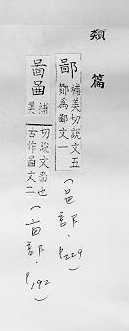 類篇
鄙 補美切說文五
鄼為鄙文一
(邑部.P229)
啚𠷎 補美
切說文嗇也
古作𠷎文二
(㐭部.P192)